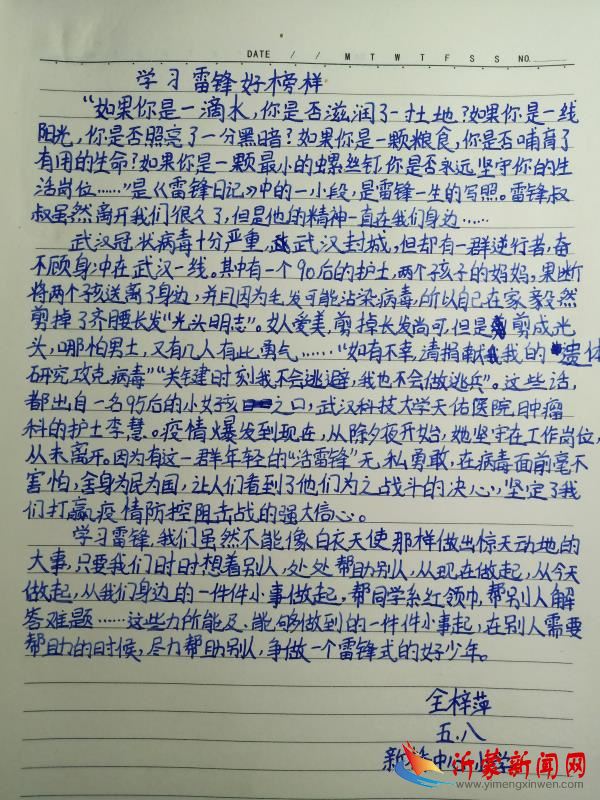 DATE / / M T W T F S S NO.
学习雷锋好榜样
“如果你是一滴水，你是否滋润了一土地？如果你是一线
阳光，你是否照亮了一分黑暗？如果你是一颗粮食，你是否哺育了
有用的生命？如果你是一颗最小的螺丝钉，你是否永远坚守你的生
活岗位……”是《雷锋日记》中的一小段，是雷锋一生的写照。雷锋叔
叔虽然离开我们很久了，但是他的精神一直在我们身边……
武汉冠状病毒十分严重，武汉封城，但却有一群逆行者，奋
不顾身冲在武汉一线。其中有一个90后的护士，两个孩子的妈妈，果断
将两个孩送离了身边，并且因为毛发可能沾染病毒，所以自己在家毅然
剪掉了齐腰长发“光头明志”。女人爱美，剪掉长发尚可，但是剪成光
头，哪怕男士，又有几人有此勇气……“如有不幸，请捐献我的遗体
研究攻克病毒”“关键时刻我不会逃避，我也不会做逃兵”。这些话，
都出自一名95后的小女孩之口，武汉科技大学天佑医院肿瘤
科的护士李慧。疫情爆发到现在，从除夕夜开始，她坚守在工作岗位，
从未离开。因为有这一群年轻的“活雷锋”无私勇敢，在病毒面前毫不
害怕，舍身为民为国，让人们看到了他们为之战斗的决心，坚定了我
们打赢疫情防控阻击战的强大信心。
学习雷锋，我们虽然不能像白衣天使那样做出惊天动地的
大事，只要我们时时想着别人，处处帮助别人，从现在做起，从今天
做起，从我们身边的一件件小事做起，帮同学系红领巾，帮别人解
答难题……这些力所能及、能够做到的一件件小事起，在别人需要
帮助的时候，尽力帮助别人，争做一个雷锋式的好少年。
全梓萍
五.八
新中心小学
沂蒙新闻网
www.yimengxinwen.com